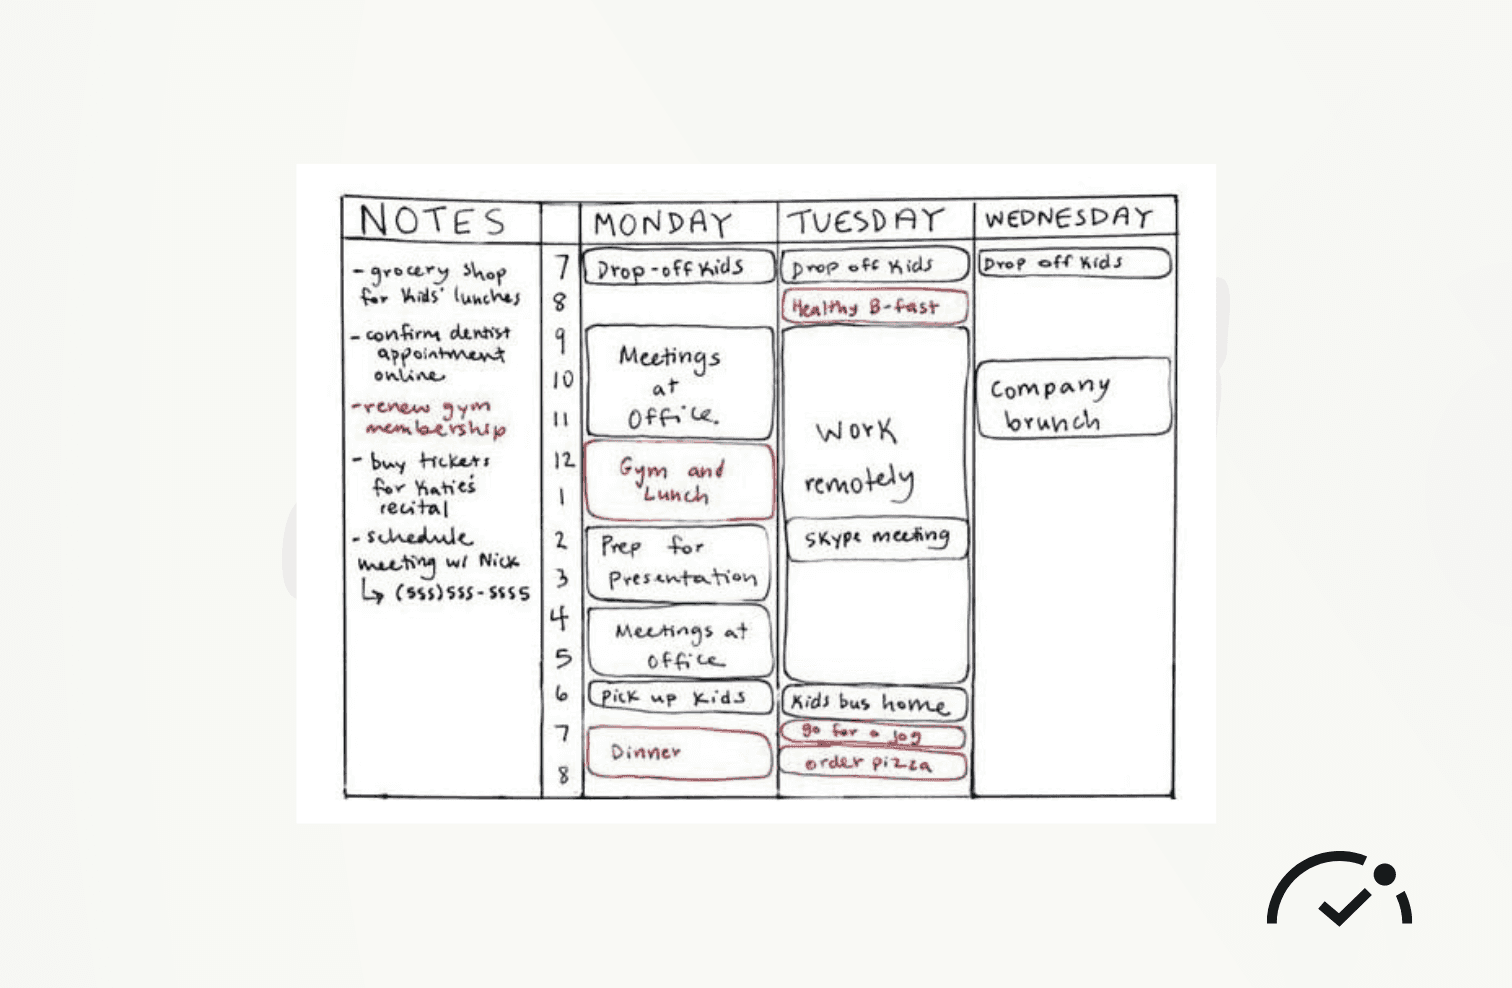 NOTES
MONDAY
TUESDAY
WEDNESDAY
- grocery shop
for Kids' lunches
- confirm dentist
appointment
online
- renew gym
membership
- buy tickets
for Katie's
recital
- schedule
meeting w/ Nick
↳ (555)555-5555
7
8
9
10
11
12
1
2
3
4
5
6
7
8
Drop-off Kids
Meetings
at
Office.
Gym and
Lunch
Prep for
Presentation
Meetings at
office
Pick up Kids
Dinner
Drop off Kids
Healthy B-fast
Work
remotely
Skype meeting
Kids bus home
go for a jog
order pizza
Drop off Kids
Company
brunch